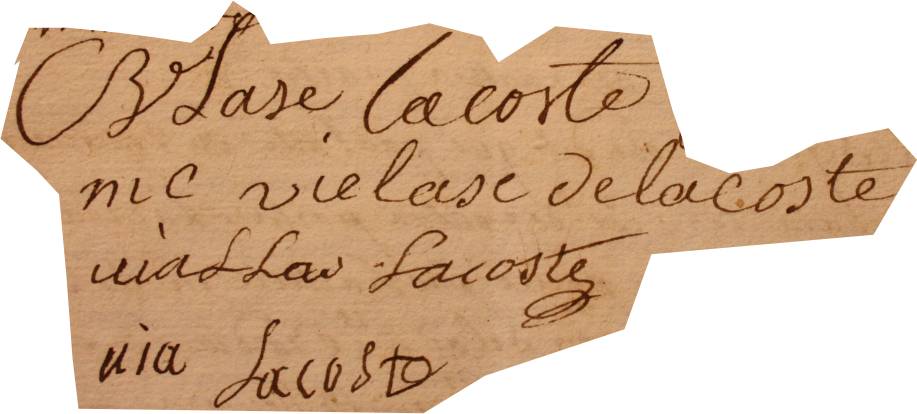 B Lase Lacoste
mc vielase delacoste
viallar Lacoste
via Lacoste